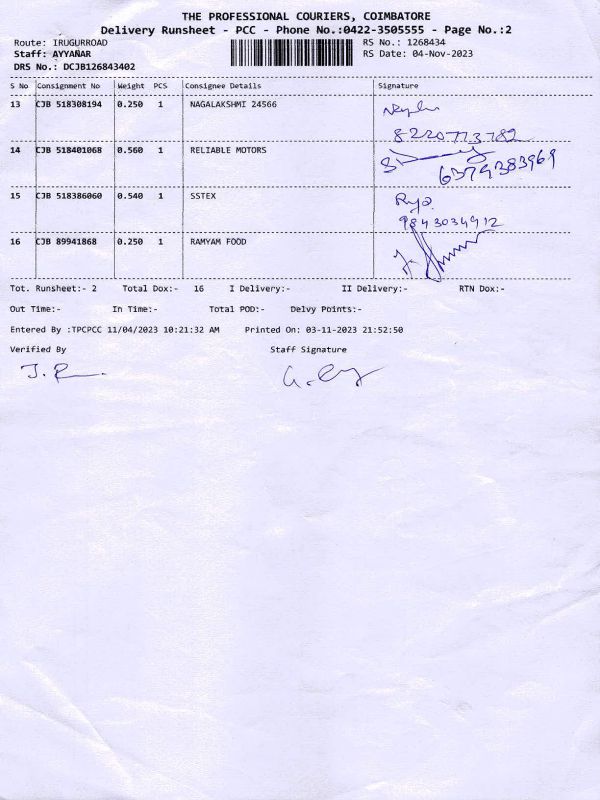 THE PROFESSIONAL COURIERS, COIMBATORE
Delivery Runsheet - PCC - Phone No.:0422-3505555 - Page No.:2
Route: IRUGURROAD
Staff: AYYAÑAR
DRS No.: DCJB126843402
RS No.: 1268434
RS Date: 04-Nov-2023
S No Consignment No Weight PCS Consignee Details Signature
13 CJB 518308194 0.250 1 NAGALAKSHMI 24566
8220773782
14 CJB 518401068 0.560 1 RELIABLE MOTORS
6379383969
15 CJB 518386060 0.540 1 SSTEX
9843034912
16 CJB 89941868 0.250 1 RAMYAM FOOD
Tot. Runsheet:- 2 Total Dox:- 16 I Delivery:- II Delivery:- RTN Dox:-
Out Time:- In Time:- Total POD:- Delvy Points:-
Entered By :TPCPCC 11/04/2023 10:21:32 AM Printed On: 03-11-2023 21:52:50
Verified By Staff Signature